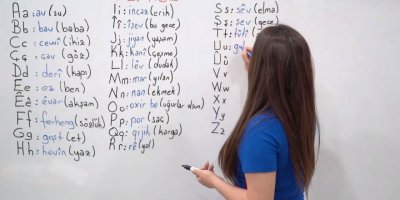 Aa: av (su)
Bb: bav (baba)
Cc: cewî (ikiz)
Çç: çav (göz)
Dd: derî (kapı)
Ee: ez (ben)
Êê: êvar (akşam)
Ff: ferheng (sözlük)
Gg: goşt (et)
Hh: havîn (yaz)
Ii: incaz (erik)
Îî: îşev (bu gece)
Jj: jiyan (yaşam)
Kk: kanî (çeşme)
Ll: lêv (dudak)
Mm: mar (yılan)
Nn: nan (ekmek)
Oo: oxir be (uğurlar olsun)
Pp: por (saç)
Qq: qijik (karga)
Rr: rê (yol)
Ss: sêv (elma)
Şş: şev (gece)
Tt:
Uu:
Ûû
Vv
Ww
Xx
Yy
Zz